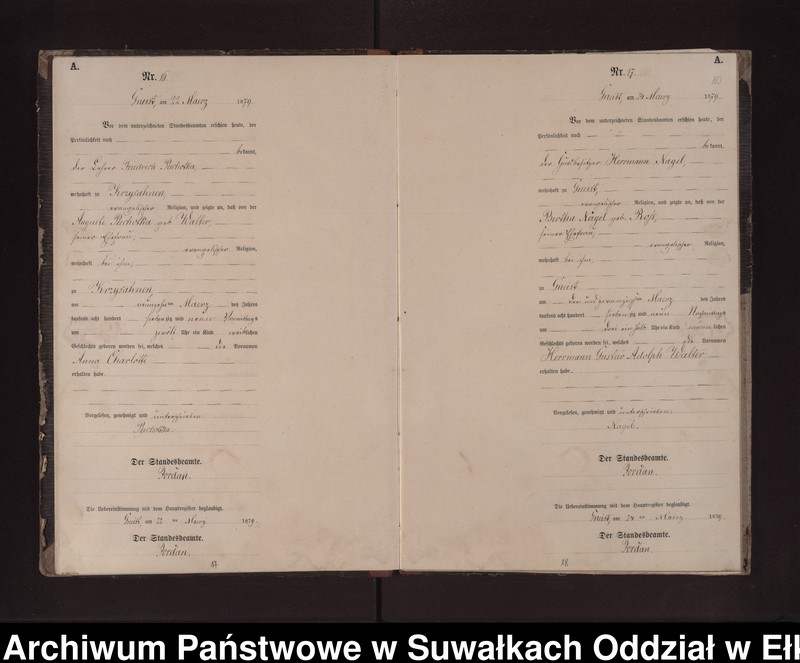 A.
Nr. 16
Gneist, am 22 Maerz 1879.
Vor dem unterzeichneten Standesbeamten erschien heute, der
Persönlichkeit nach
bekannt,
der Lehrer Friedrich
wohnhaft zu Krzysahnen,
evangelischer Religion, und zeigte an, daß von der
Auguste geb Walter,
seiner Ehefrau,
evangelischer Religion,
wohnhaft bei ihm,
zu Krzysahnen,
am neunzehnten Maerz des Jahres
tausend acht hundert siebenzig und neun Vormittags
um zwölf Uhr ein Kind weiblichen
Geschlechts geboren worden sei, welches die Vornamen
Anna Charlotte
erhalten habe
Vorgelesen, genehmigt und unterschrieben
Der Standesbeamte.
Jordan.
Die Uebereinstimmung mit dem Hauptregister beglaubigt.
Gneist, am 22 ten Maerz 1879.
Der Standesbeamte.
Jordan.
17
A.
Nr. 17.
Gneist, am 24 Maerz 1879.
Vor dem unterzeichneten Standesbeamten erschien heute, der
Persönlichkeit nach
bekannt,
der Herrmann Nagel,
wohnhaft zu Gneist,
evangelischer Religion, und zeigte an, daß von der
Bertha Nagel geb. Roß,
seiner Ehefrau,
evangelischer Religion,
wohnhaft bei ihm,
zu Gneist
am drei und zwanzigsten Maerz des Jahres
tausend acht hundert siebenzig und neun Nachmittags
um drei ein halb Uhr ein Kind männlichen
Geschlechts geboren worden sei, welches die Vornamen
Herrmann Gustav Adolph Walter
erhalten habe.
Vorgelesen, genehmigt und unterschrieben.
Nagel.
Der Standesbeamte.
Jordan.
Die Uebereinstimmung mit dem Hauptregister beglaubigt
Gneist, am 24 ten Maerz 1879.
Der Standesbeamte.
Jordan.
18.
Archiwum Państwowe w Suwałkach Oddział w Ełk